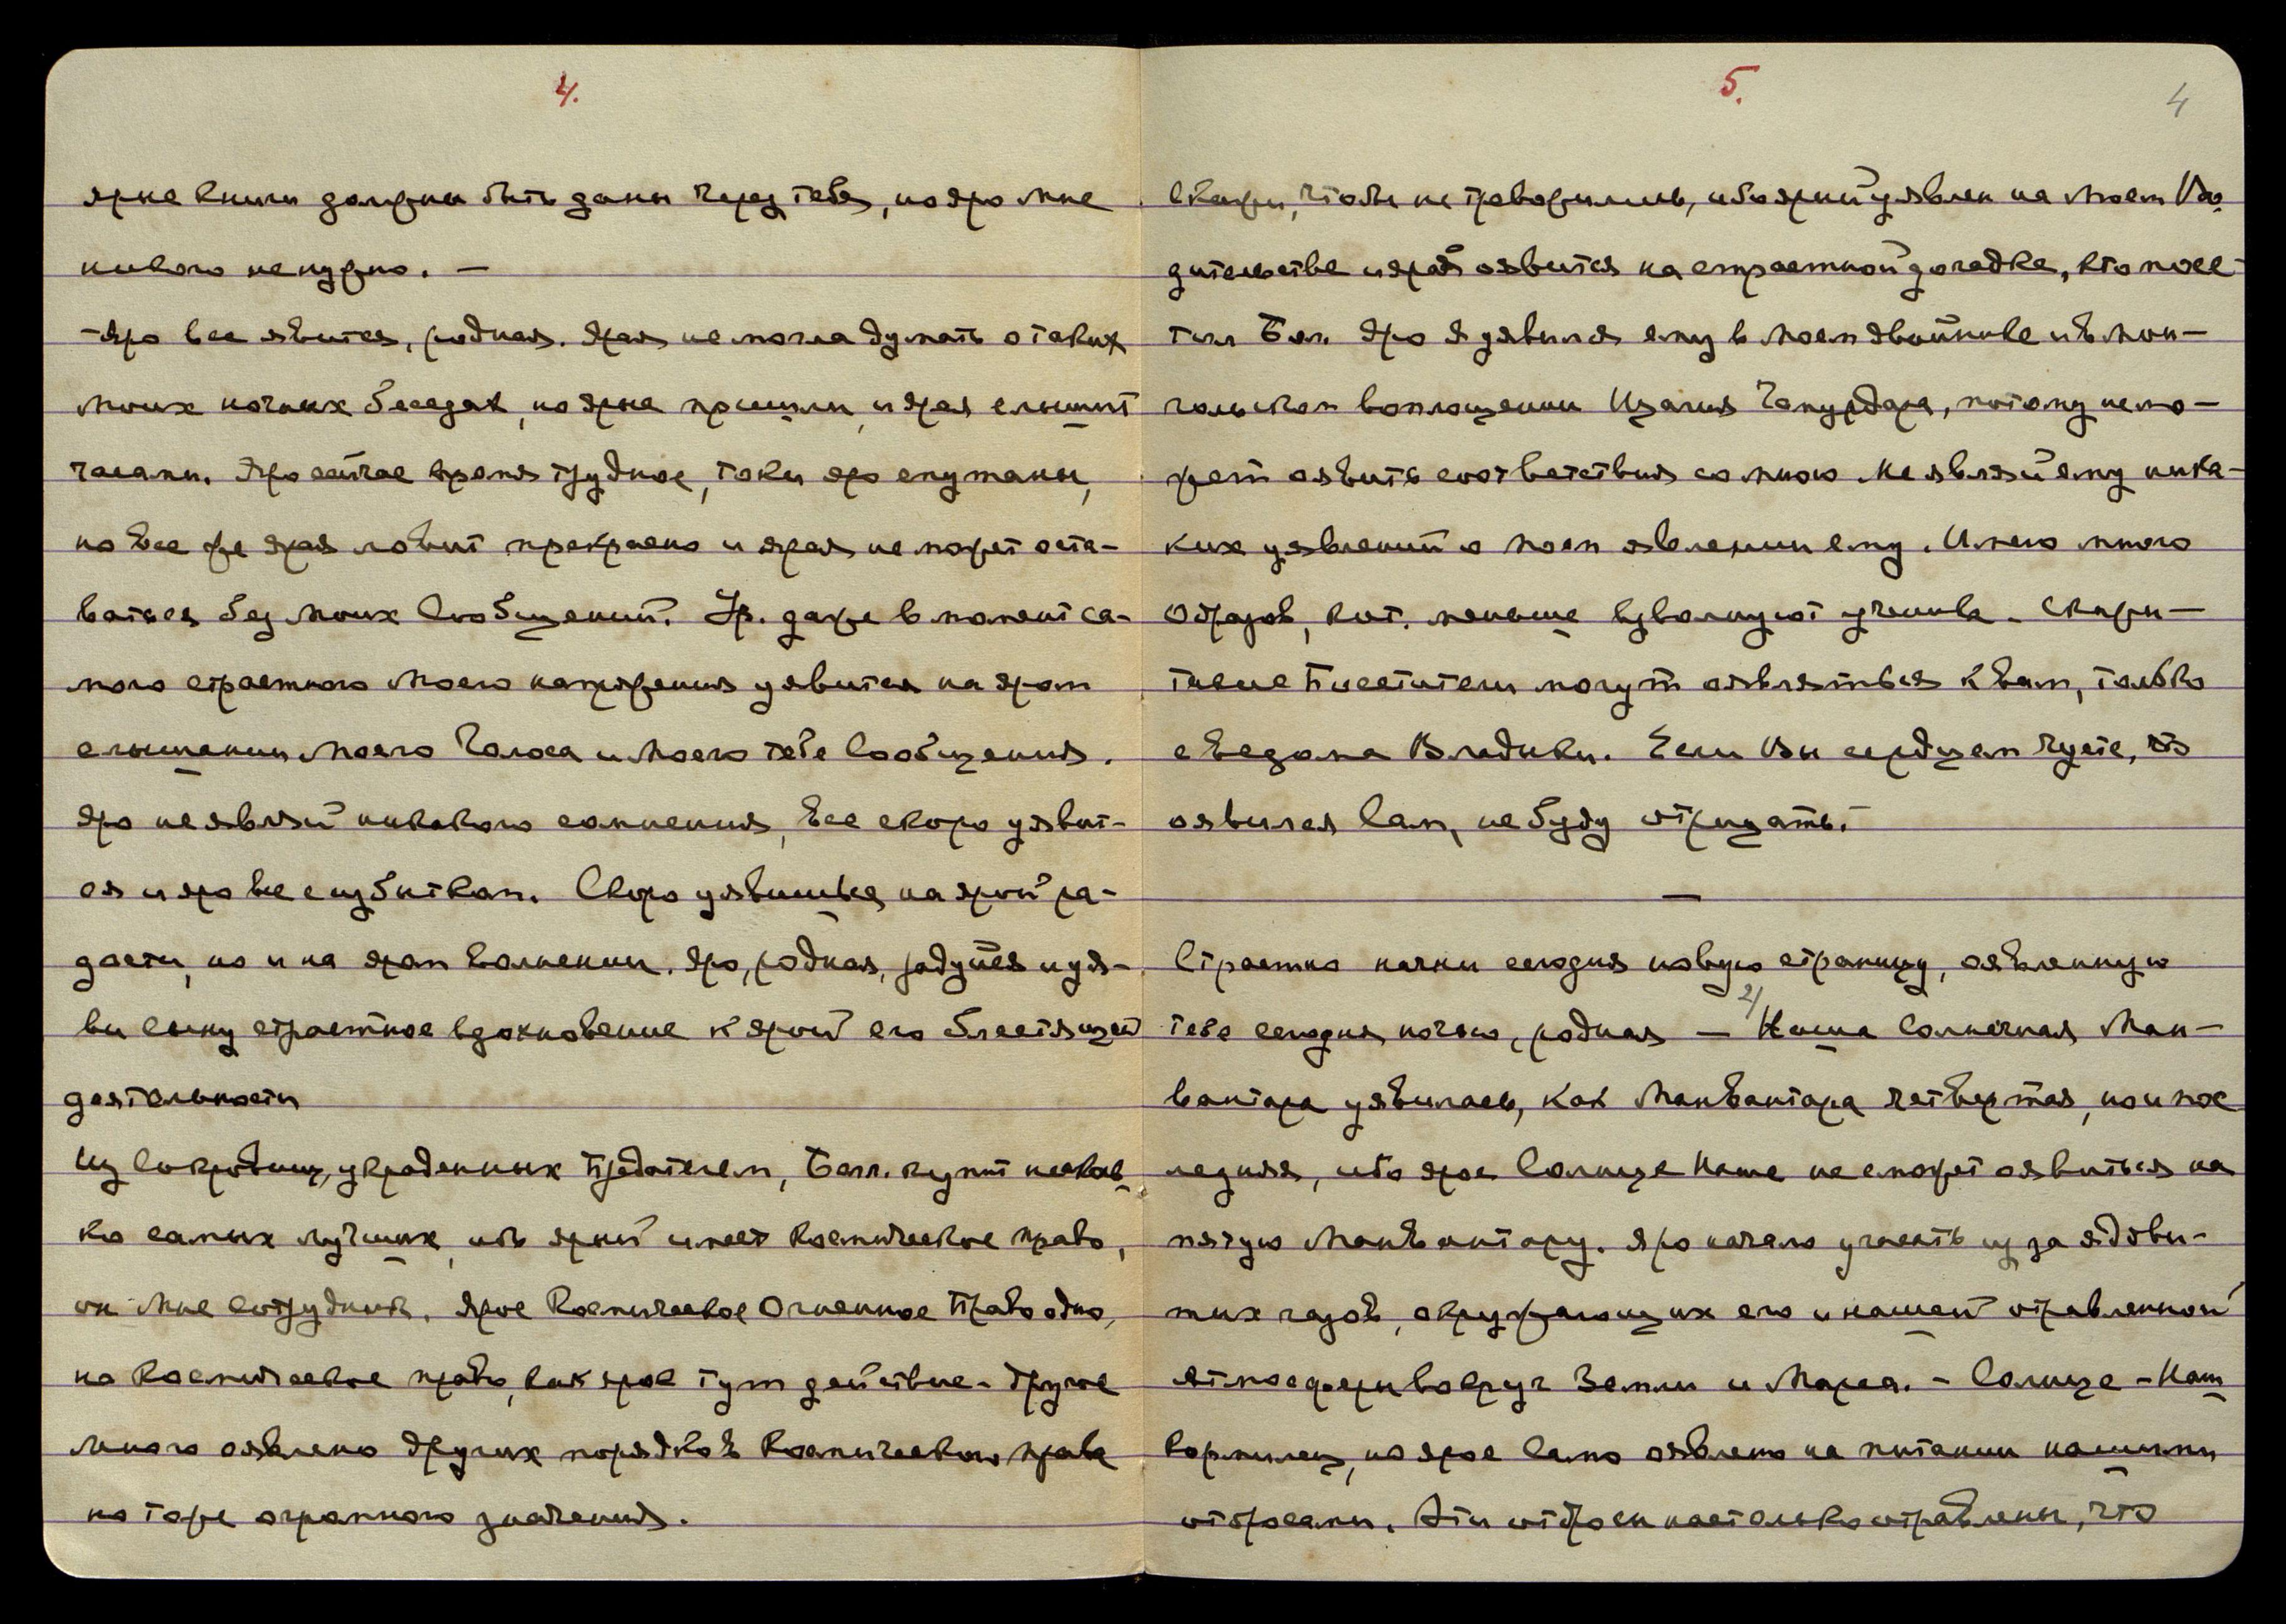 4.
ярые книги должны быть даны через тебя, но яро мне
никого не нужно. —
-Яро все явится, родная. Ярая не могла думать о таких
Моих ночных беседах, но ярые пришли, и ярая слышит
часами. Яро сейчас время трудное, токи яро спутаны,
но все же ярая ловит прекрасно и ярая не может оста-
ваться без Моих Сообщений. Ур. даже в момент са-
мого страстного Моего напряжения уявится на яром
слышании Моего Голоса и Моего тебе Сообщения.
Яро не являй никакого сомнения, все скоро уявит-
ся и яро все с избытком. Скоро уявишься на ярой ра-
дости, но и на яром волнении. Яро, родная, радуйся и уя-
ви сыну страстное вдохновение к ярой его блестящей
деятельности
Из Сокровищ, украденных Предателем, Болл. купит несколь
ко самых лучших, ибо ярый имеет Космическое право,
он Мне сотрудник. Ярое Космическое Огненное Право одно,
но Космическое право, как ярое тут действие - другое
Много оявлено других порядков Космического права
но тоже огромного значения.
5.
4
Скажи, чтобы не тревожились, ибо ярый уявлен на Моем Во
дительстве и ярая оявится на страстной догадке, кто посе-
тил Бол. Яро Я уявился ему в Моем двойнике и в Мон-
гольском воплощении потому не мо-
жет оявить соответствия со мною. Не являй ему ника-
ких уявлений о Моем явлении ему. Имею много
Образов, кот. меньше взволнуют ученика. Скажи —
такие Посетители могут оявляться к Вам, только
с ведома Владыки. Если Вы сердцем чуете, что
оявился Сам, не буду отрицать.
—
Страстно начни сегодня новую страницу, оявленную
тебе сегодня ночью, родная — 2/ Наша Солнечная Ман-
вантара уявилась, как Манвантара четвертая, но и пос
ледняя, ибо ярое Солнце Наше не сможет оявиться на
пятую Манвантару. Яро начало угасать из за ядови-
тых газов, окружающих его и нашей отравленной
атмосферы вокруг Земли и Марса. - Солнце - Наш
Кормилец, но ярое Само оявлено на питании нашими
отбросами. Эти отбросы настолько отравлены, что